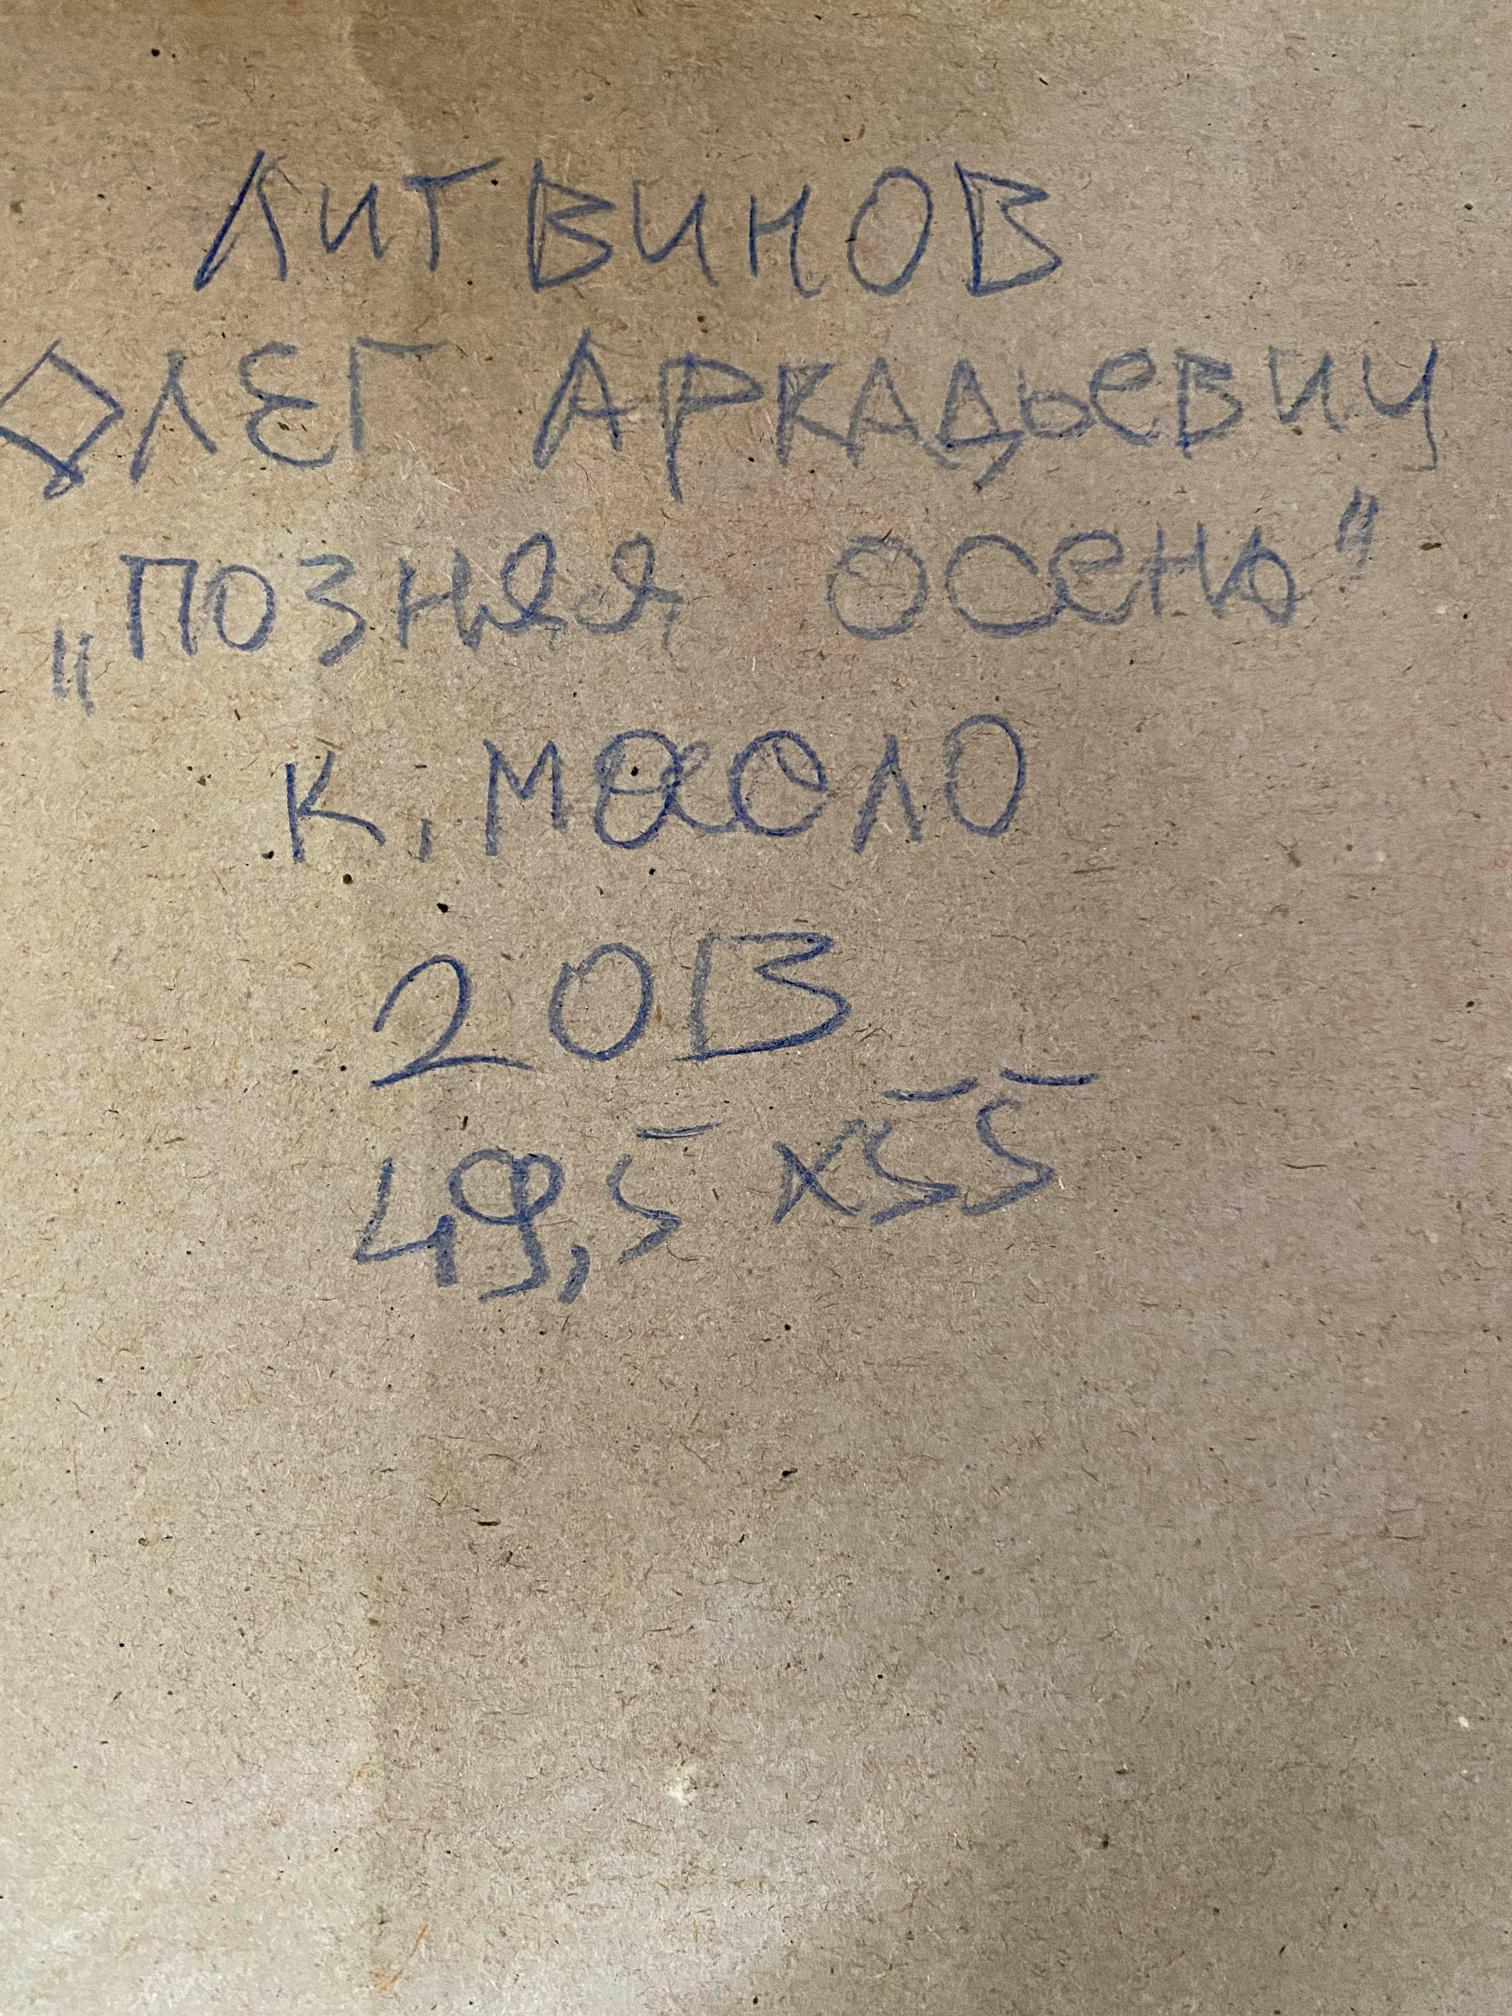 ЛИТВИНОВ
ОЛЕГ АРКАДЬЕВИЧ
„ПОЗНЯЯ ОСЕНЬ"
К, МАСЛО
2013
49,5 x 55